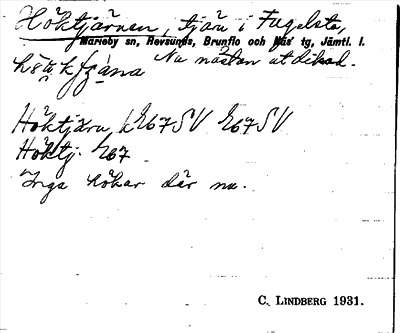 Höktjärnen, tjärn i Fugelsta,
Marieby sn, Revsunds, Brunflo och Näs tg, Jämtl. l.
Nu nästan utdikad.
Höktjärn k E67SV E67SV
Höktj. E67
Inga hökar där nu.
C. LINDBERG 1931.